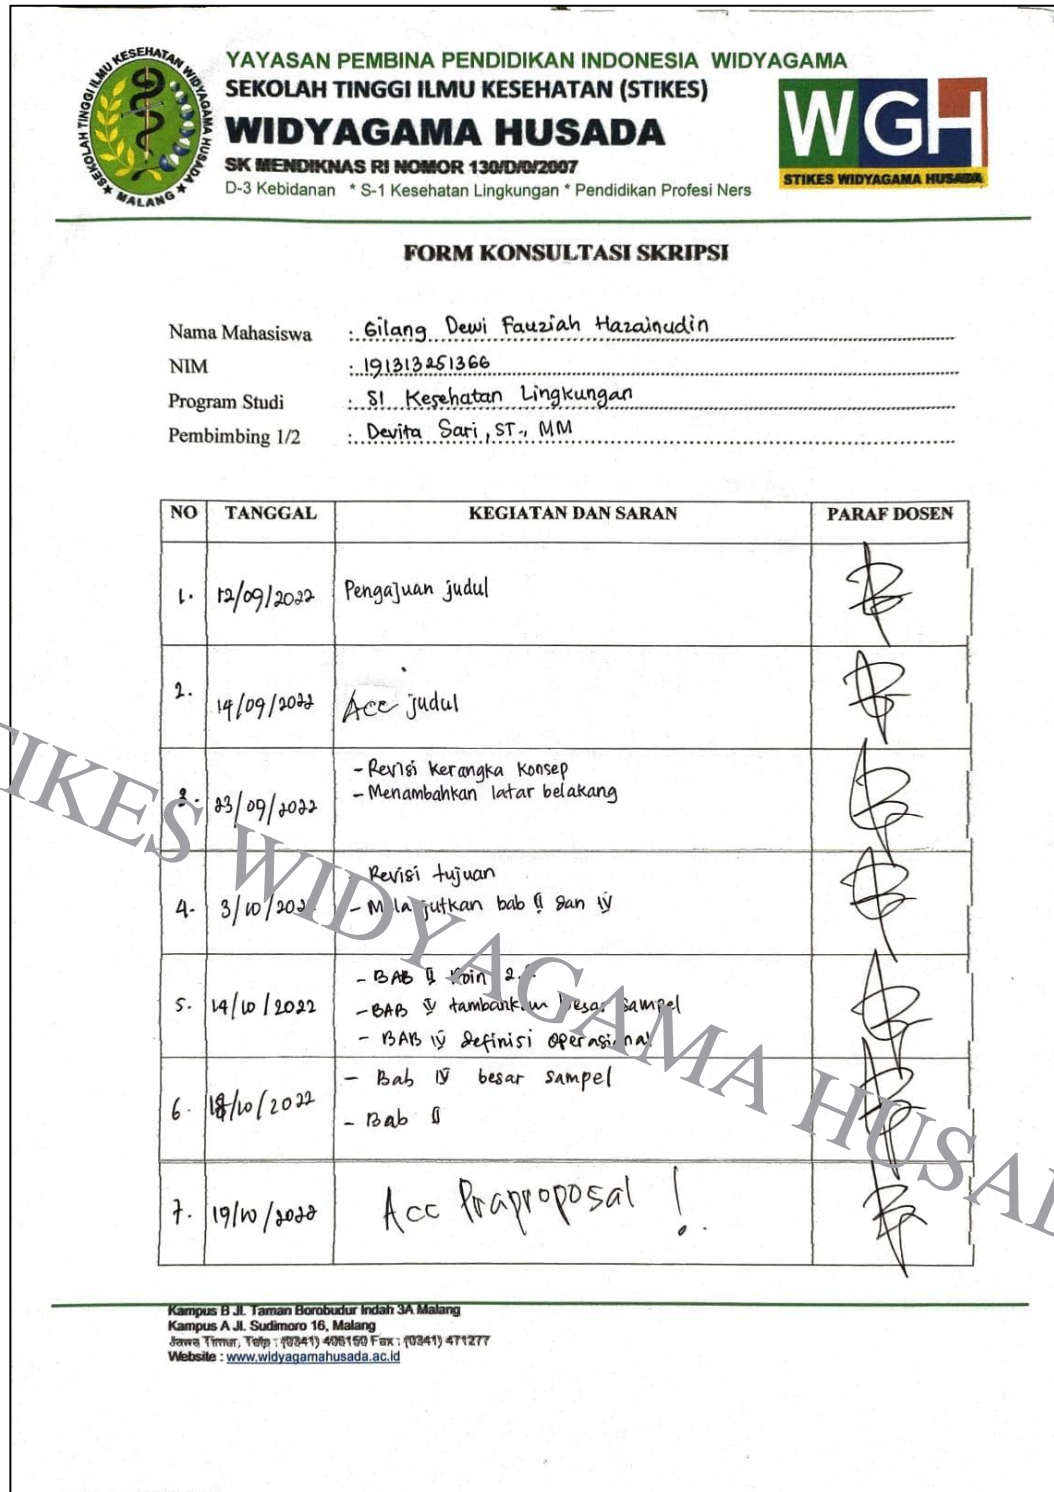 SEKOLAH TINGGI ILMU KESEHATAN WIDYAGAMA HUSADA
MALANG
YAYASAN PEMBINA PENDIDIKAN INDONESIA WIDYAGAMA
SEKOLAH TINGGI ILMU KESEHATAN (STIKES)
WIDYAGAMA HUSADA
SK MENDIKNAS RI NOMOR 130/D/0/2007
D-3 Kebidanan * S-1 Kesehatan Lingkungan * Pendidikan Profesi Ners
WGH
STIKES WIDYAGAMA HUSADA
FORM KONSULTASI SKRIPSI
Nama Mahasiswa : Gilang Dewi Fauziah Hazainudin
NIM : 191313251366
Program Studi : S1 Kesehatan Lingkungan
Pembimbing 1/2 : Devita Sari, ST., MM
NO TANGGAL KEGIATAN DAN SARAN PARAF DOSEN
1. 12/09/2022 Pengajuan judul
2. 14/09/2022 Acc judul
3. 23/09/2022 - Revisi kerangka konsep
- Menambahkan latar belakang
4. 3/10/202 - Revisi tujuan
- Melanjutkan bab II dan IV
5. 14/10/2022 - BAB II Koin 2.
- BAB IV tambahkan besar sampel
- BAB IV definisi operasional
6. 18/10/2022 - Bab IV besar sampel
- Bab II
7. 19/10/2022 Acc Praproposal !
STIKES WIDYAGAMA HUSADA
Kampus B Jl. Taman Borobudur Indah 3A Malang
Kampus A Jl. Sudimoro 16, Malang
Jawa Timur, Telp : (0341) 406150 Fax : (0341) 471277
Website : www.widyagamahusada.ac.id